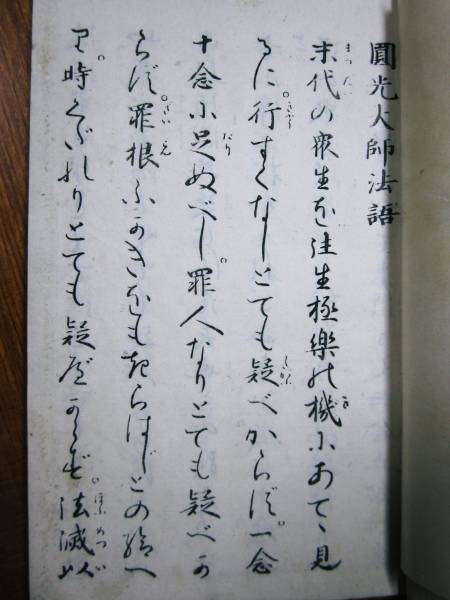 圓光大師法語
末代の衆生を往生極樂の機にあてゝ見
るに行すくなしとても疑べからず一念
十念に足ぬべし罪人なりとても疑べか
らず罪根ふかきをもきらはじとの給へ
り時くだれりとても疑べからず法滅以